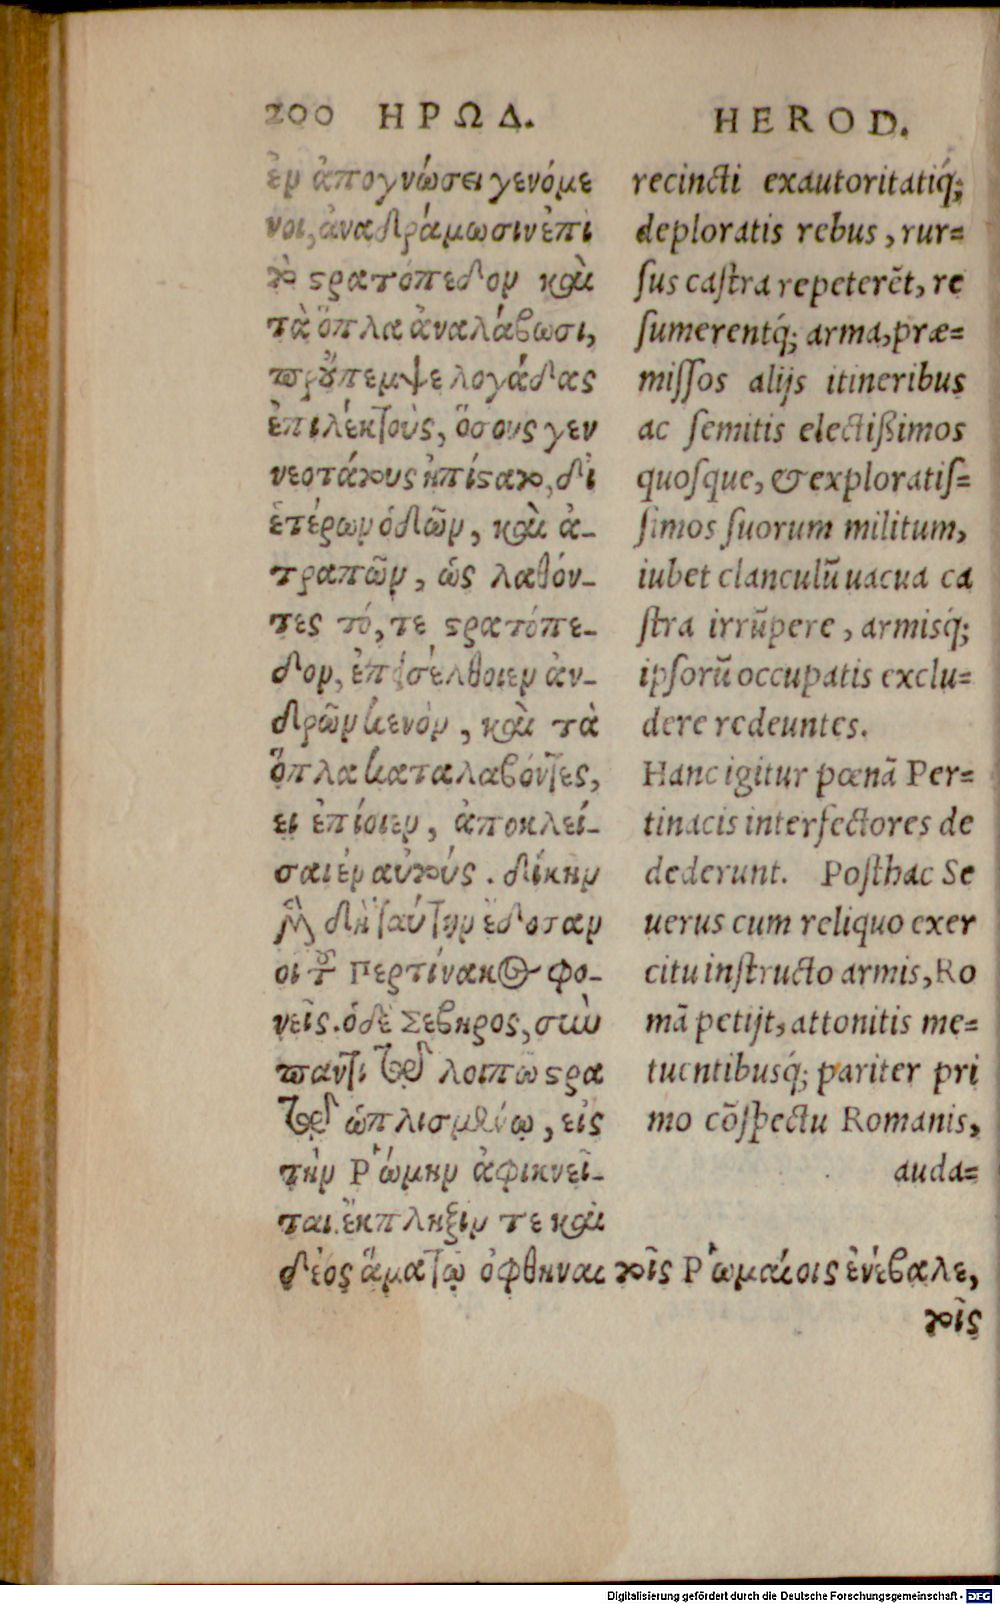 200 ΗΡΩΔ.
ἐν ἀπογνώσει γενόμε
νοι, ἀναδράμωσιν ἐπι
τὸ στρατόπεδον καὶ
τὰ ὅπλα ἀναλάβωσι,
προὔπεμψε λογάδας
ἐπιλέκτους, ὅσους γεν
νεοτάτους ἠπίστατο, δἰ
ἑτέρων ὁδῶν, καὶ ἀ-
τραπῶν, ὡς λαθόν-
τες τό, τε στρατόπε-
δον, ἐπεισέλθοιεν ἀν-
δρῶν κενὸν, καὶ τὰ
ὅπλα καταλαβόντες,
ει ἐπίοιεν, ἀποκλεί-
σαι ἐν αὐτούς. δίκην
μὲν δὴ ταύτην ἔδοσαν
οι τοῦ Περτίνακος φο-
νεῖς. ὁ δὲ Σεβηρος, σὺν
παντὶ τῷ λοιπῶ στρα
τῷ ὡπλισμένῳ, εἰς
τὴν Ῥώμην ἀφικνεῖ-
ται. ἔκπληξιν τε καὶ
δέος ἅμα τῷ ὀφθηναι τοῖς Ῥωμαίοις ἐνέβαλε,
τοῖς
HEROD.
recincti exautoritatiq́;
deploratis rebus, rur=
sus castra repeterēt, re
sumerentq́; arma, præ=
missos alijs itineribus
ac semitis electißimos
quosque, & exploratis=
simos suorum militum,
iubet clanculū uacua ca
stra irrūpere, armisq́;
ipsorū occupatis exclu=
dere redeuntes.
Hanc igitur pœnā Per=
tinacis interfectores de
dederunt. Posthac Se
uerus cum reliquo exer
citu instructo armis, Ro
mā petijt, attonitis me=
tuentibusq́; pariter pri
mo cōspectu Romanis,
auda=
Digitalisierung gefördert durch die Deutsche Forschungsgemeinschaft - DFG